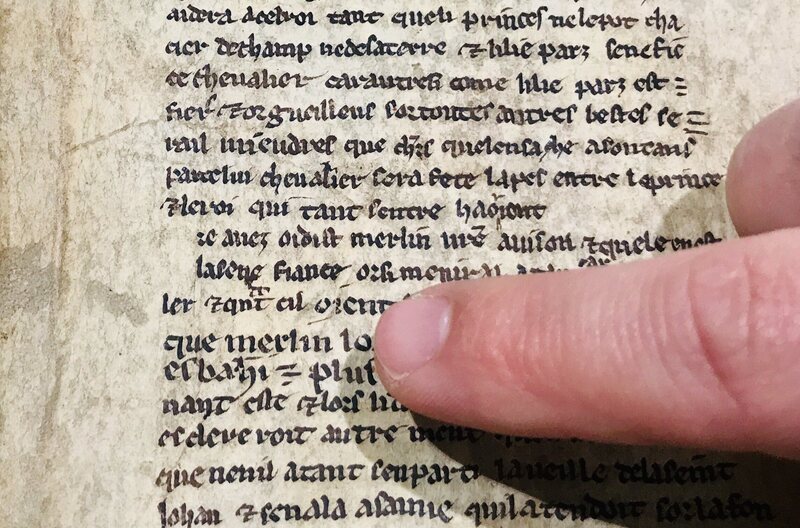 aidera aceltroi tant queli princes nelepot cha
cier dechamp nedesaterre ⁊ lilie parz senefie
ce chevalier carautresi come lilie parz est
fier ⁊ orgueilleus sortoutes autres bestes se
rail mieudres que chrs quelensache asontans
parcelui chevalier sera fete lapes entre leprince
⁊ leroi qui tant sentre haoient
Or avez oidist merlin vre avision ⁊ quele
lasene fiance orsi menirai
ler ⁊ qnt cil oient
que merlin lo
esbahi plus
nant este ⁊ lors li
esclere roit autre ment
que nenil atant senparti laveille delaseint
Johan ⁊ senala asamie quilatendoit sorlafon